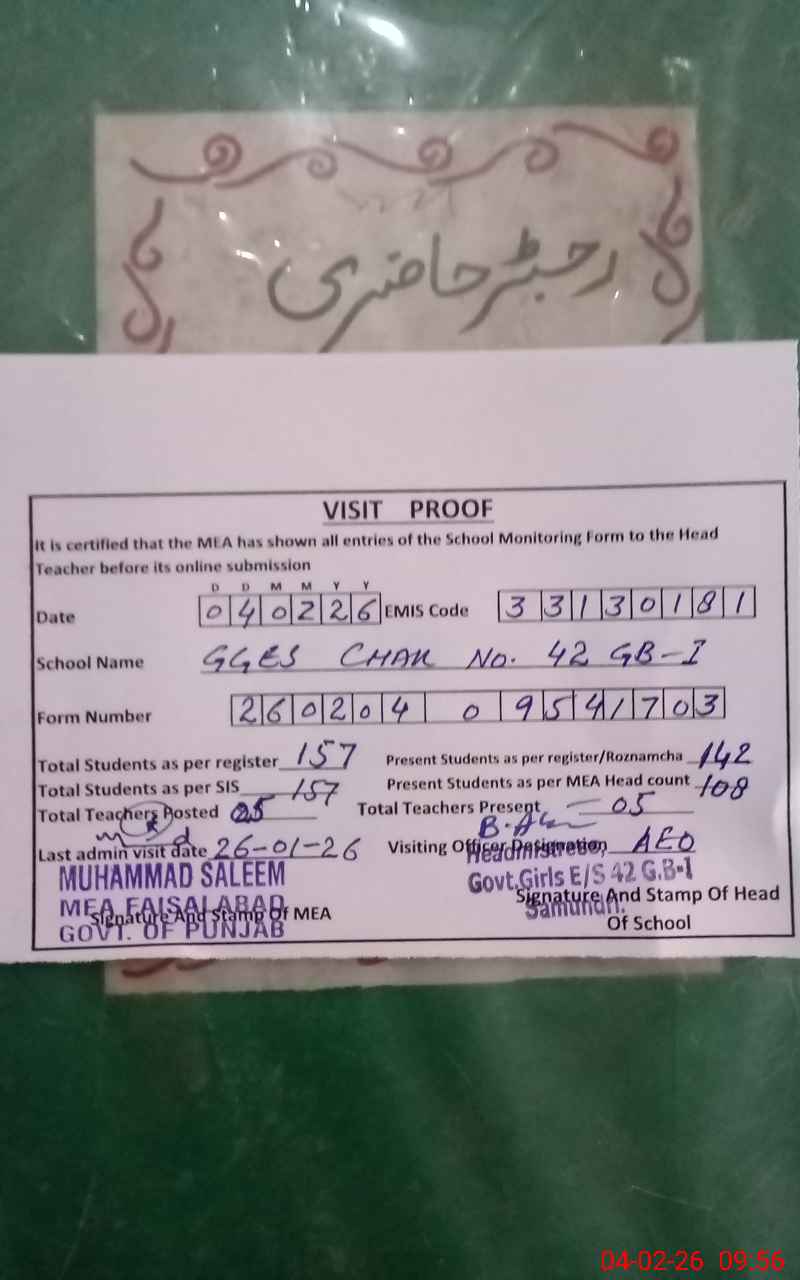 رجسٹر حاضری
VISIT PROOF
It is certified that the MEA has shown all entries of the School Monitoring Form to the Head
Teacher before its online submission
D D M M Y Y
Date 040226 EMIS Code 33130181
School Name GGES CHAK No. 42 GB-I
Form Number 260204 0 9541703
Total Students as per register 157 Present Students as per register/Roznamcha 142
Total Students as per SIS 157 Present Students as per MEA Head count 108
Total Teachers Posted 05 Total Teachers Present 05
Last admin visit date 26-01-26 Visiting Officer Designation AEO
MUHAMMAD SALEEM
MEA FAISALABAD
GOVT. OF PUNJAB
Signature And Stamp Of MEA
Headmistress,
Govt.Girls E/S 42 G.B-1
Samundri.
Signature And Stamp Of Head
Of School
04-02-26 09:56